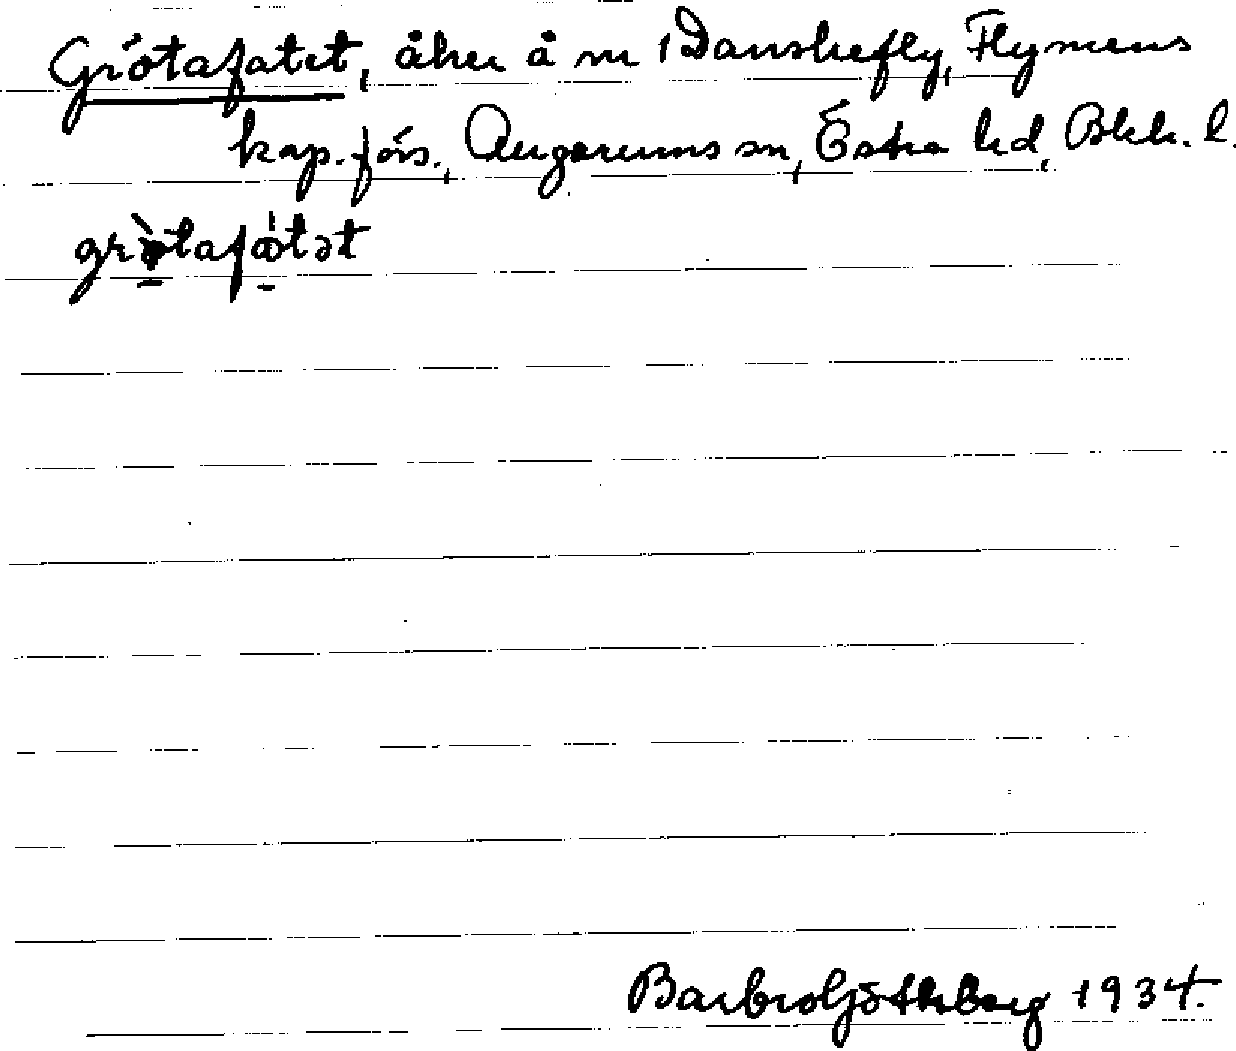 Grötafatet, åker å nr 1 Danskefly, Flymens
kap. förs., Augerums sn, Östra hd, Blek. l.
grø̀tafátət
Barbro Götheberg 1934.